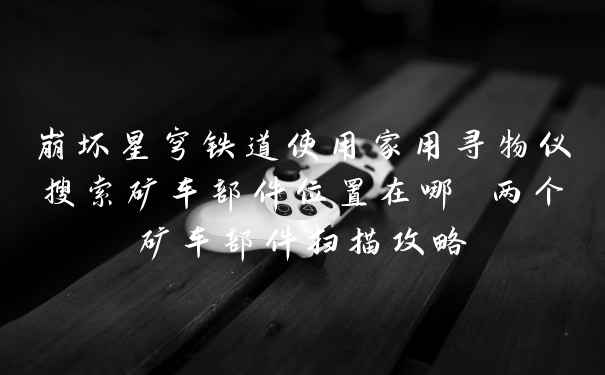 崩坏星穹铁道使用家用寻物仪
搜索矿车部件位置在哪 两个
矿车部件扫描攻略